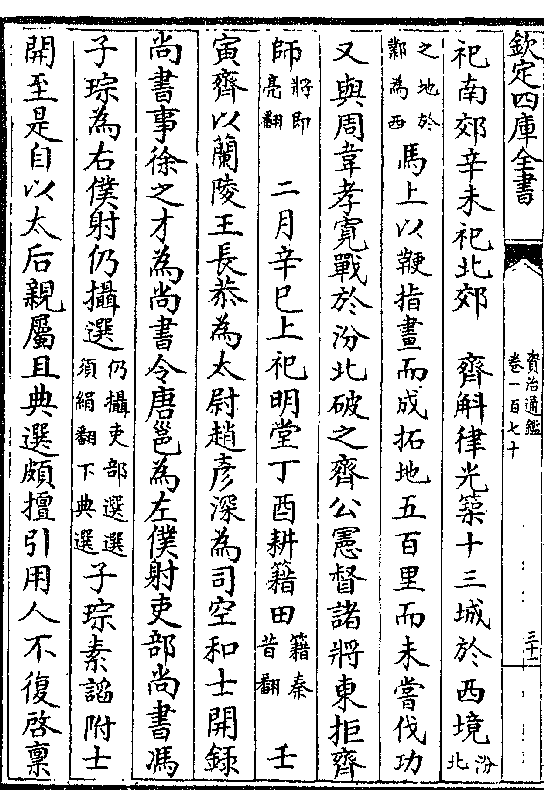 欽定四庫全書
資治通鑑
卷一百七十
三十一
祀南郊辛未祀北郊　齊斛律光築十三城於西境汾北
之地於鄴為西馬上以鞭指畫而成拓地五百里而未嘗伐功
又與周韋孝寬戰於汾北破之齊公憲督諸將東拒齊
師將即亮翻　二月辛巳上祀明堂丁酉耕籍田籍秦昔翻　壬
寅齊以蘭陵王長恭為太尉趙彥深為司空和士開録
尚書事徐之才為尚書令唐邕為左僕射吏部尚書馮
子琮為右僕射仍攝選仍攝吏部選選須絹翻下典選子琮素諂附士
開至是自以太后親屬且典選頗擅引用人不復啓稟